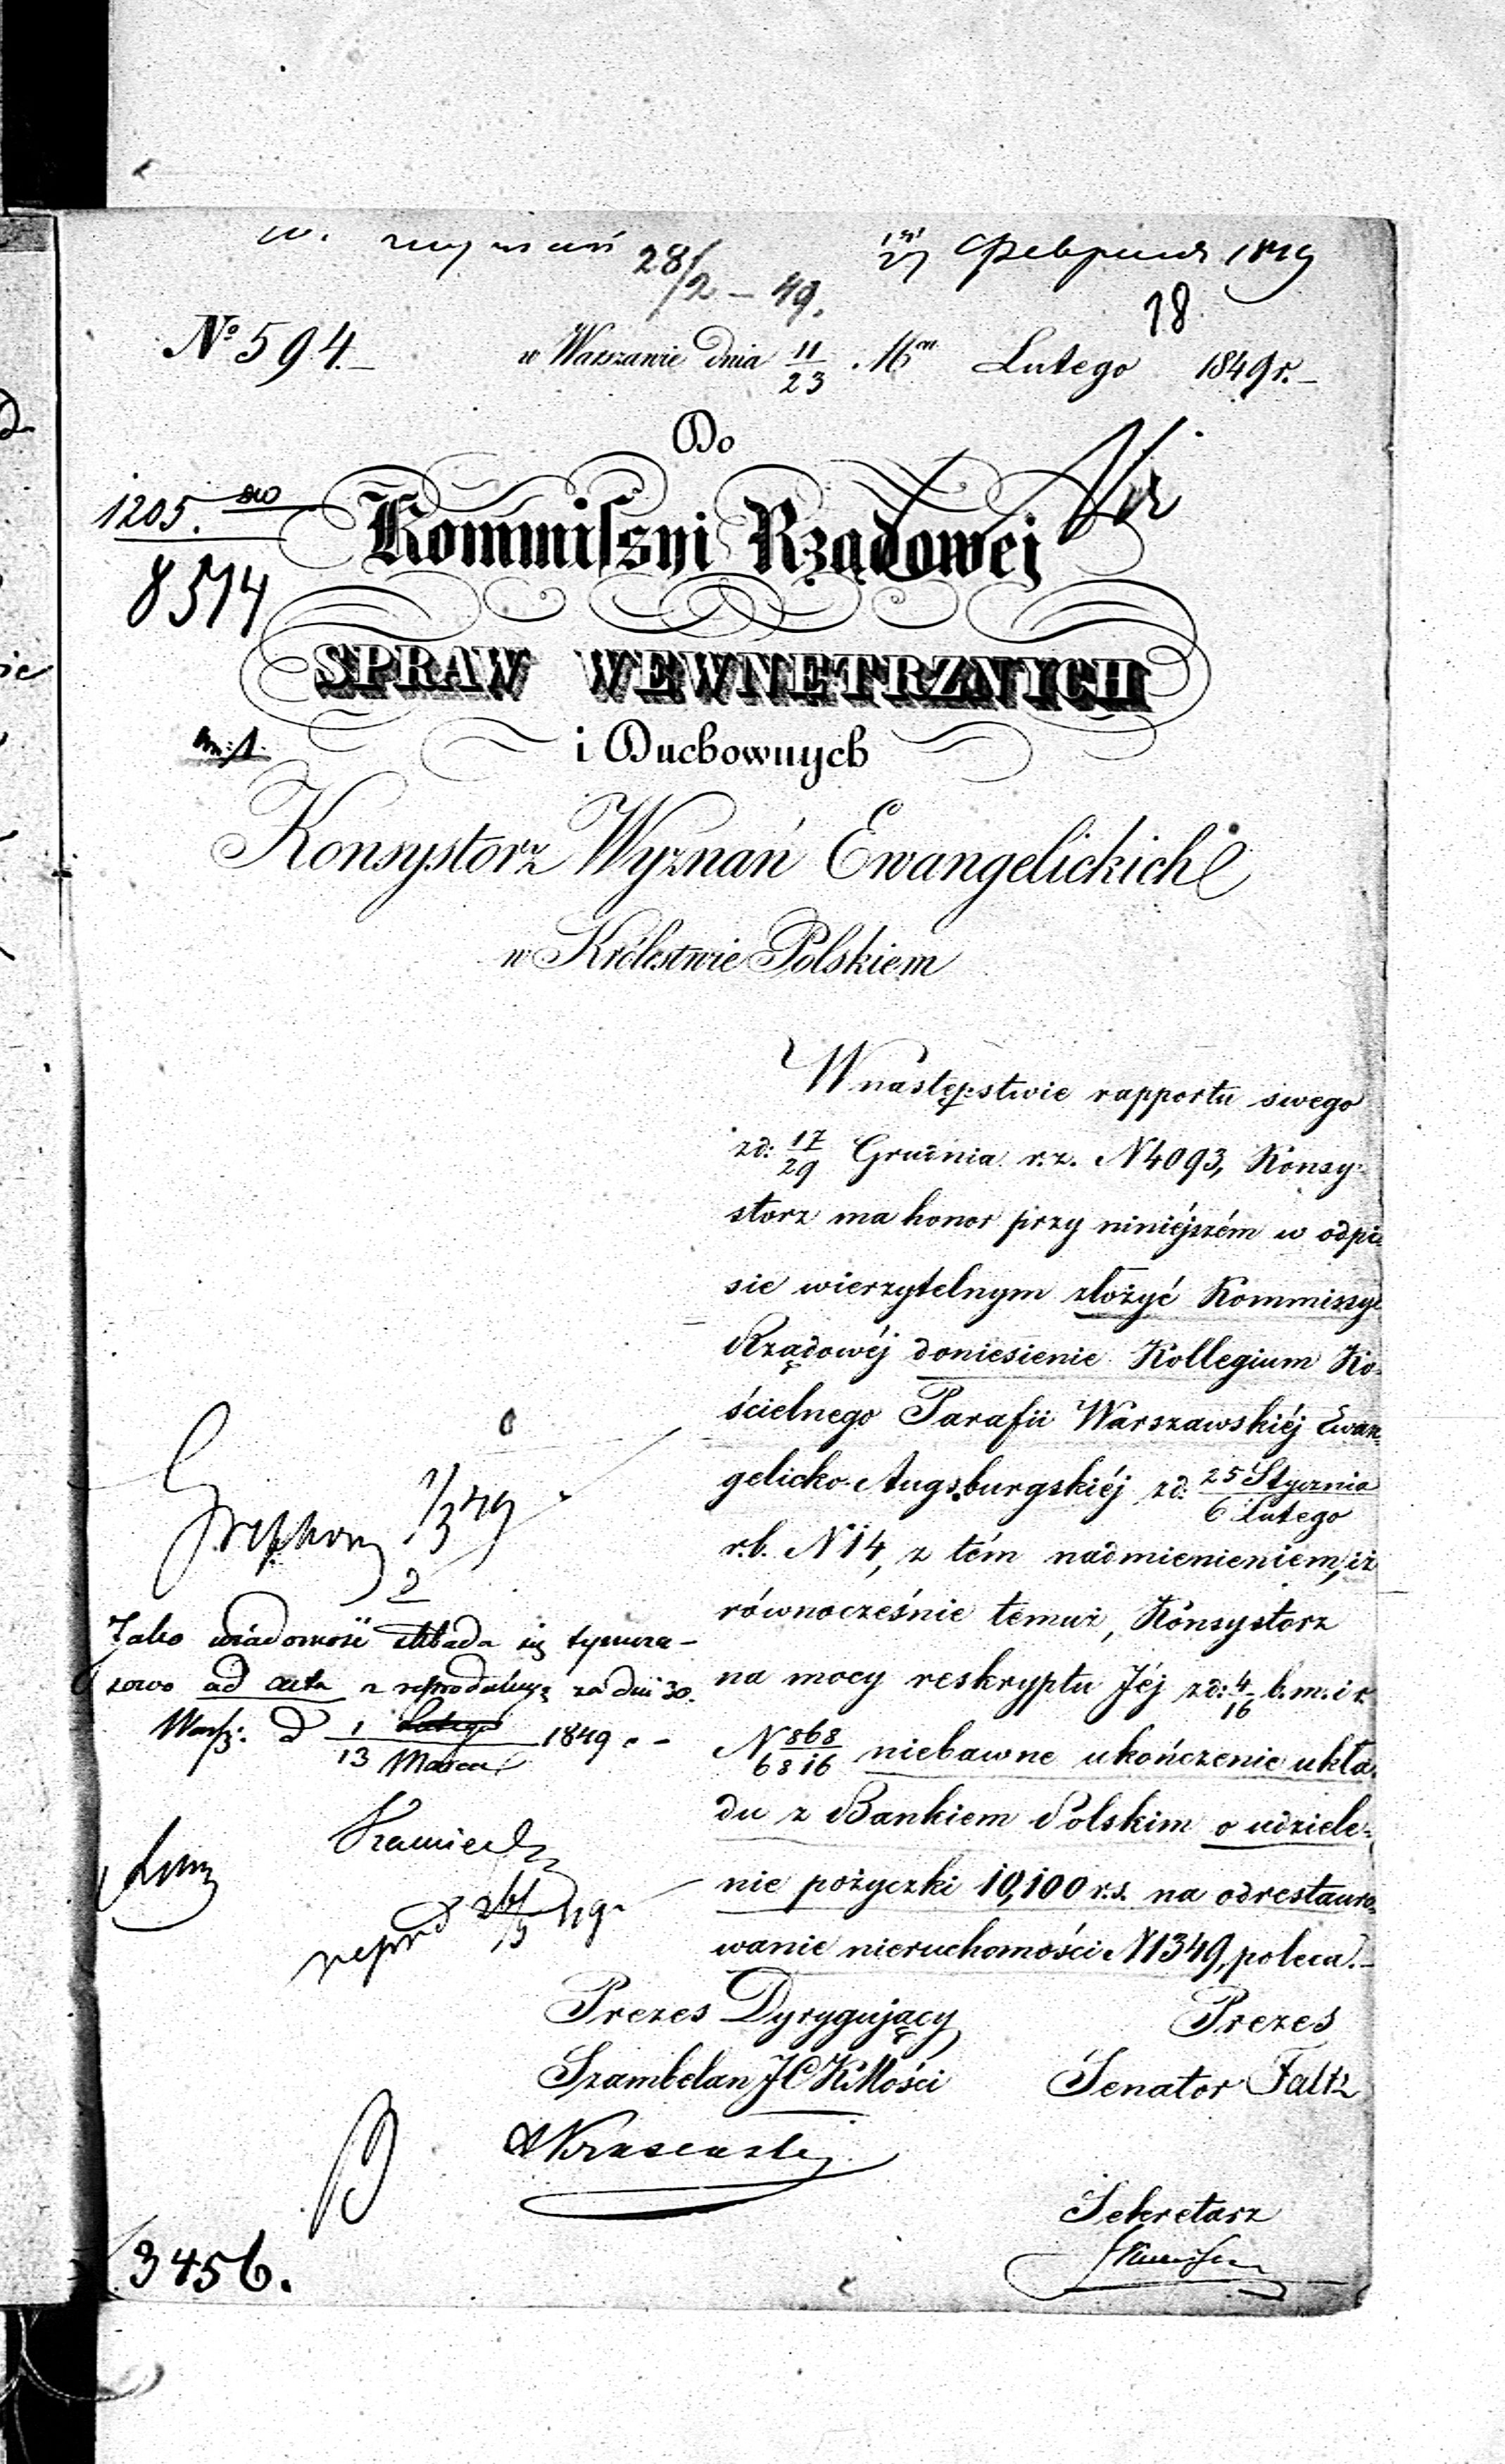 w.
28/2 – 49.
15/27 Февраля 1849
18
№ 594.
w Warszawie dnia 11/23 Mca Lutego 1849 r.
Do
1205.
8514
Kommissyi Rządowej
SPRAW WEWNĘTRZNYCH
i Duchownych
Konsystorz Wyznań Ewangelickich
w Królestwie Polskiem
W następstwie rapportu swego
zd: 17/29 Grudnia r. z. N 4093, Konsy-
storz ma honor przy niniéjszém w odpi-
sie wierzytelnym złożyć Kommissyi
Rządowéj doniesienie Kollegium Ko-
ścielnego Parafii Warszawskiéj Ewan-
gelicko-Augsburgskiéj zd: 25 Stycznia/6 Lutego
r. b. N 14, z tém nadmienieniem, iż
równocześnie temuż, Konsystorz
na mocy reskryptu Jéj zd: 4/16 b. m. i r.
N 868/6816 niebawne ukończenie ukła-
du z Bankiem Polskim o udziele-
nie pożyczki 10,100 r. s. na odrestauro-
wanie nieruchomości N 1349, poleca.
1/3 49
2
Jako wiadomość składa się tymcza-
sowo ad acta z reprodukcyą za dni 30.
Warsz: d 1 Lutego/13 Marca 1849
reprod 26/5 49.
Prezes Dyrygujący
Szambelan JCKMości
Prezes
Senator Faltz
Sekretarz
3456.